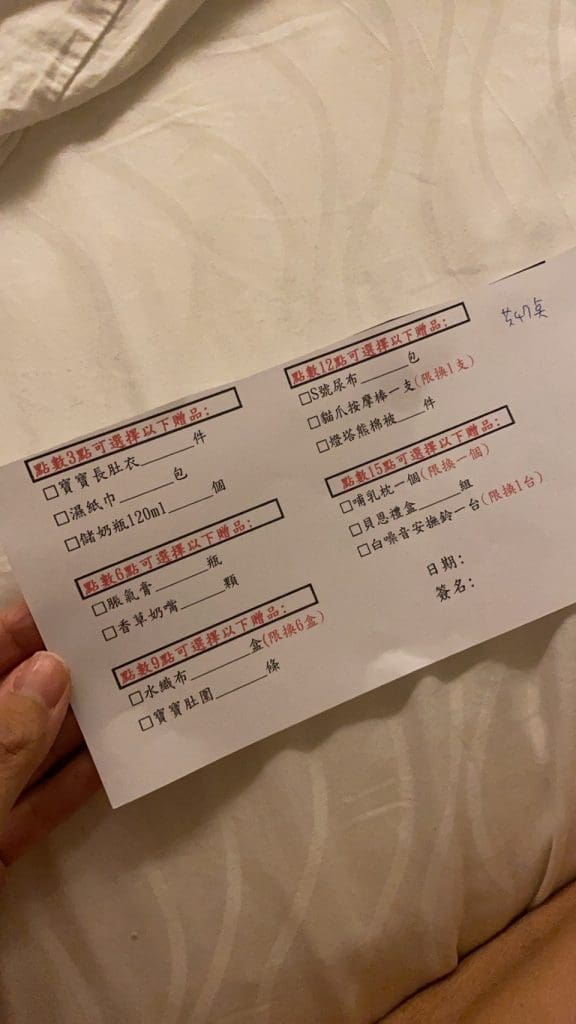 點數3點可選擇以下贈品:
□寶寶長肚衣______件
□濕紙巾______包
□儲奶瓶120ml____個
點數6點可選擇以下贈品:
□脹氣膏______瓶
□香草奶嘴_____顆
點數9點可選擇以下贈品:
□水織布_______盒(限換6盒)
□寶寶肚圍______條
共47點
點數12點可選擇以下贈品:
□S號尿布______包
□貓爪按摩棒一支(限換1支)
□燈塔熊棉被____件
點數15點可選擇以下贈品:
□哺乳枕一個(限換一個)
□貝恩禮盒_____組
□白噪音安撫鈴一台(限換1台)
日期:
簽名: